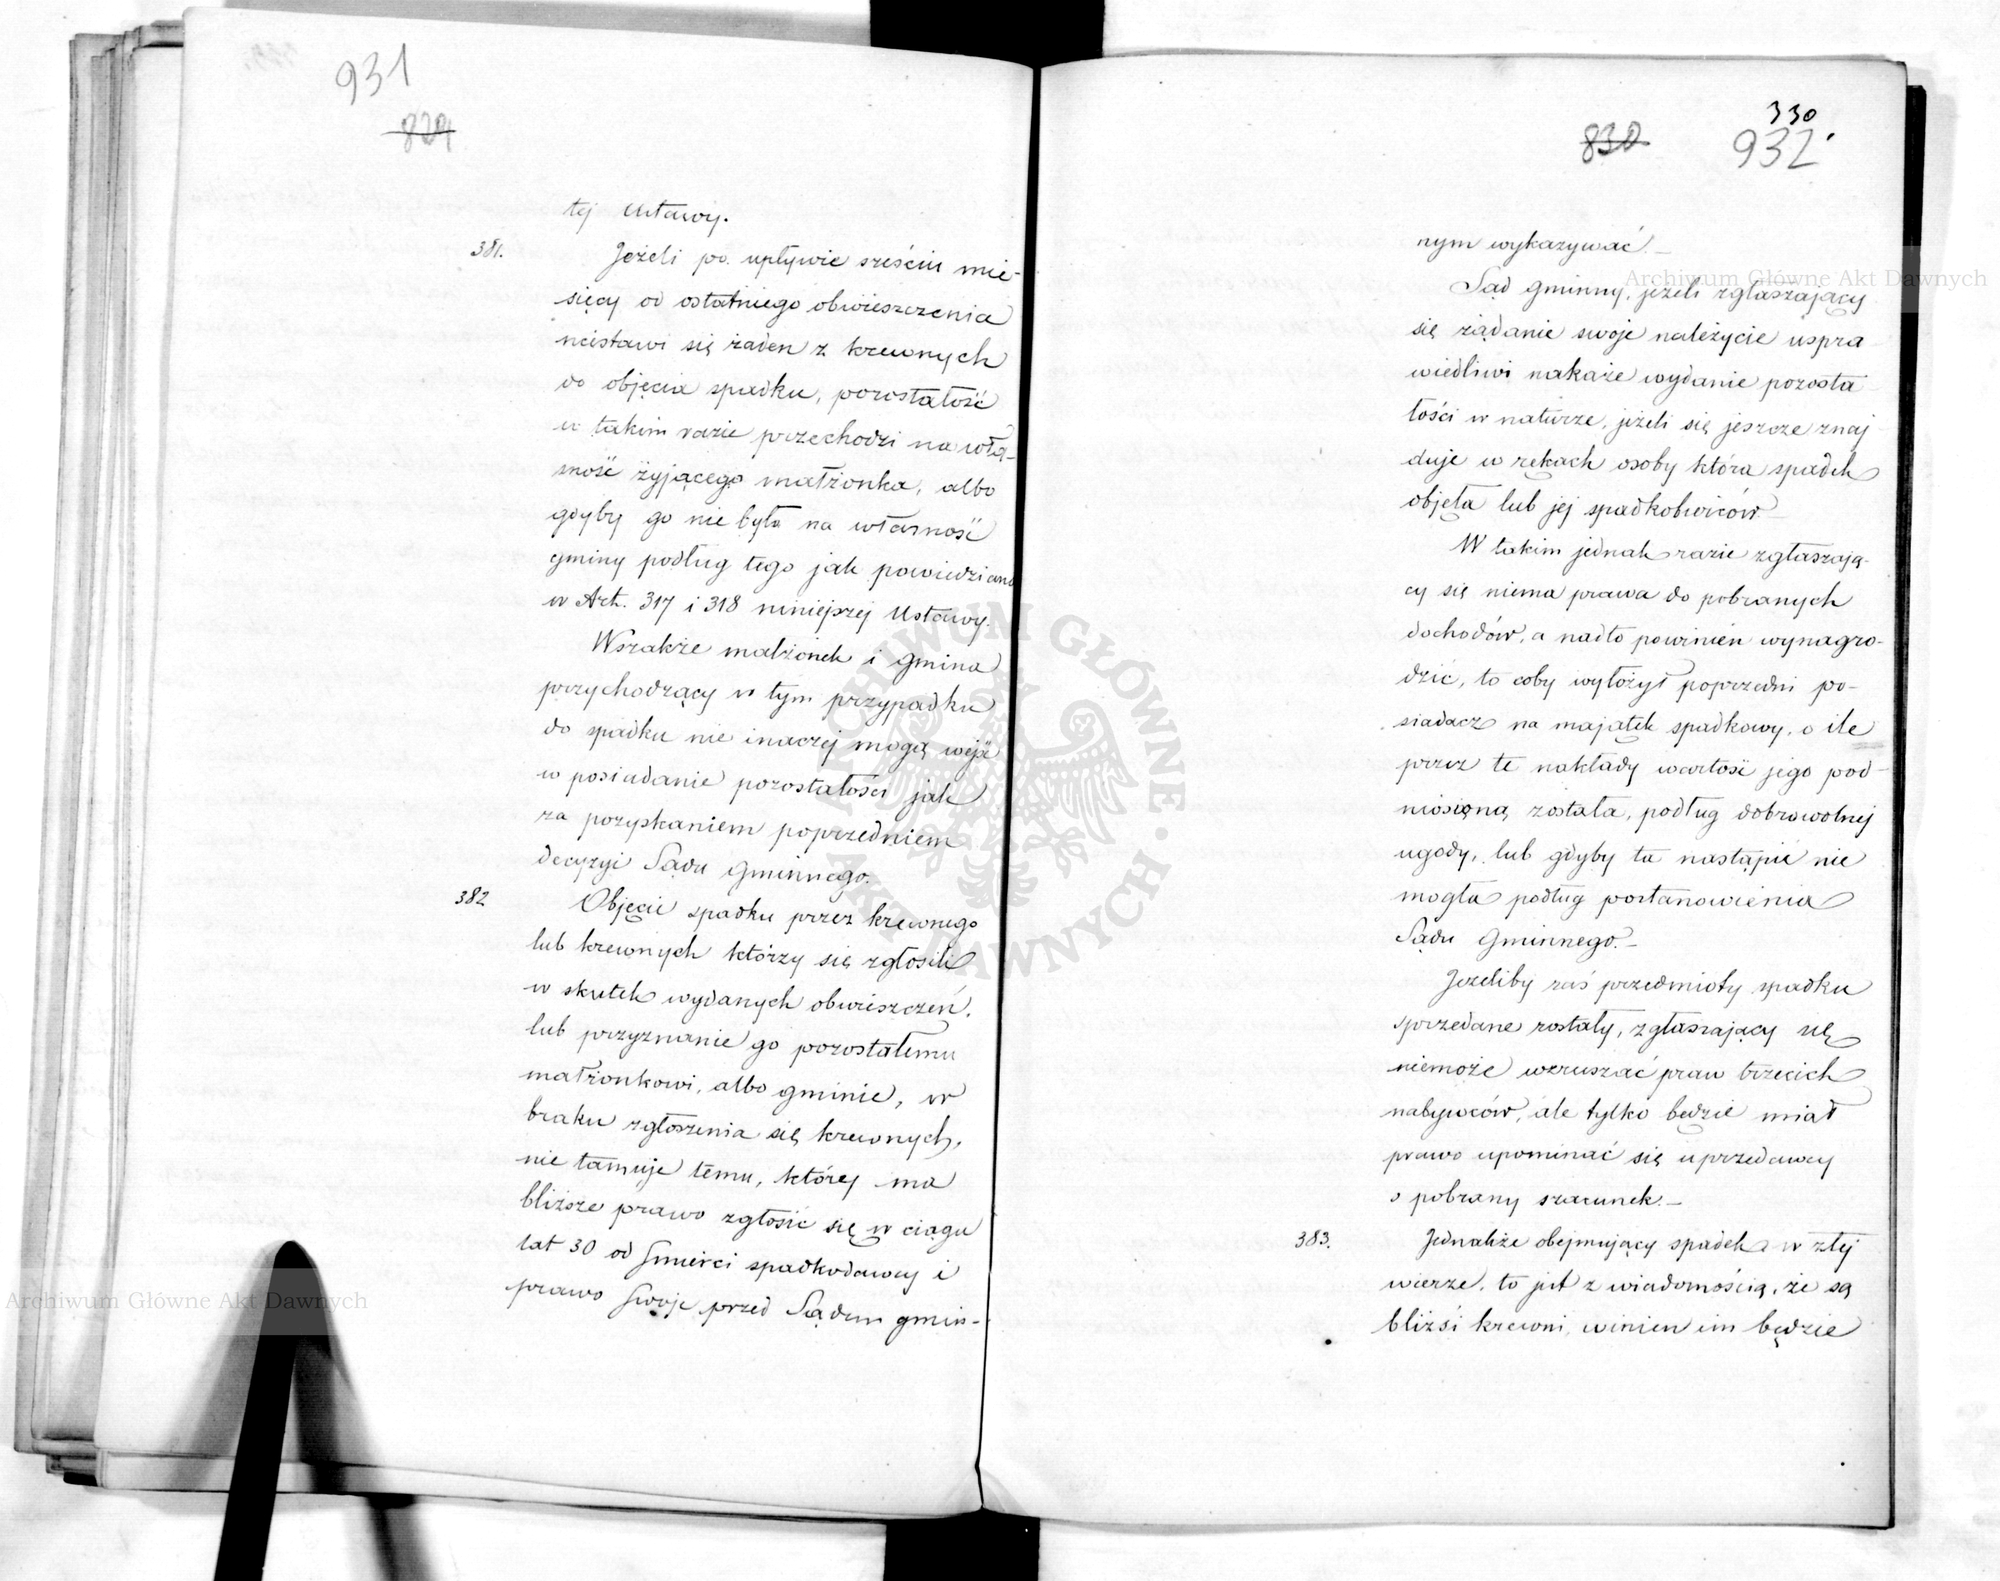 931
829
tej Ustawy.
381.
Jeżeli po upływie sześciu mie-
sięcy od ostatniego obwieszczenia
niestawi się żaden z krewnych
do objęcia spadku, pozostałość
w takim razie przechodzi na wła-
sność żyjącego małżonka, albo
gdyby go nie było na własność
gminy podług tego jak powiedziano
w Art. 317 i 318 niniejszej Ustawy.
Wszakże małżonek i gmina
przychodzący w tym przypadku
do spadku nie inaczej mogą wejść
w posiadanie pozostałości jak
za pozyskaniem poprzedniem
decyzyi Sądu Gminnego.
382
Objęcie spadku przez krewnego
lub krewnych którzy się zgłosili
w skutek wydanych obwieszczeń,
lub przyznanie go pozostałemu
małżonkowi, albo gminie, w
braku zgłoszenia się krewnych,
nie tamuje temu, który ma
bliższe prawo zgłosić się w ciągu
lat 30 od śmierci spadkodawcy i
prawo swoje przed Sądem gmin-
330
830
932
nym wykazywać.—
Sąd gminny, jeżeli zgłaszający
się żądanie swoje należycie uspra
wiedliwi nakaże wydanie pozosta
łości w naturze, jeżeli się jeszcze znaj
duje w rękach osoby która spadek
objęła lub jej spadkobierców.—
W takim jednak razie zgłaszają-
cy się niema prawa do pobranych
dochodów, a nadto powinien wynagro-
dzić, to coby wyłożył poprzedni po-
siadacz na majątek spadkowy, o ile
przez te nakłady wartość jego pod-
niesioną została, podług dobrowolnej
ugody, lub gdyby ta nastąpić nie
mogła podług postanowienia
Sądu Gminnego.—
Jeżeliby zaś przedmioty spadku
sprzedane zostały, zgłaszający się
niemoże wzruszać praw trzecich
nabywców, ale tylko będzie miał
prawo upominać się u przedawcy
o pobrany szacunek.—
383.
Jednakże obejmujący spadek w złej
wierze, to jest z wiadomością, że są
bliżsi krewni, winien im będzie
Archiwum Główne Akt Dawnych
Archiwum Główne Akt Dawnych
ARCHIWUM GŁÓWNE • AKT DAWNYCH